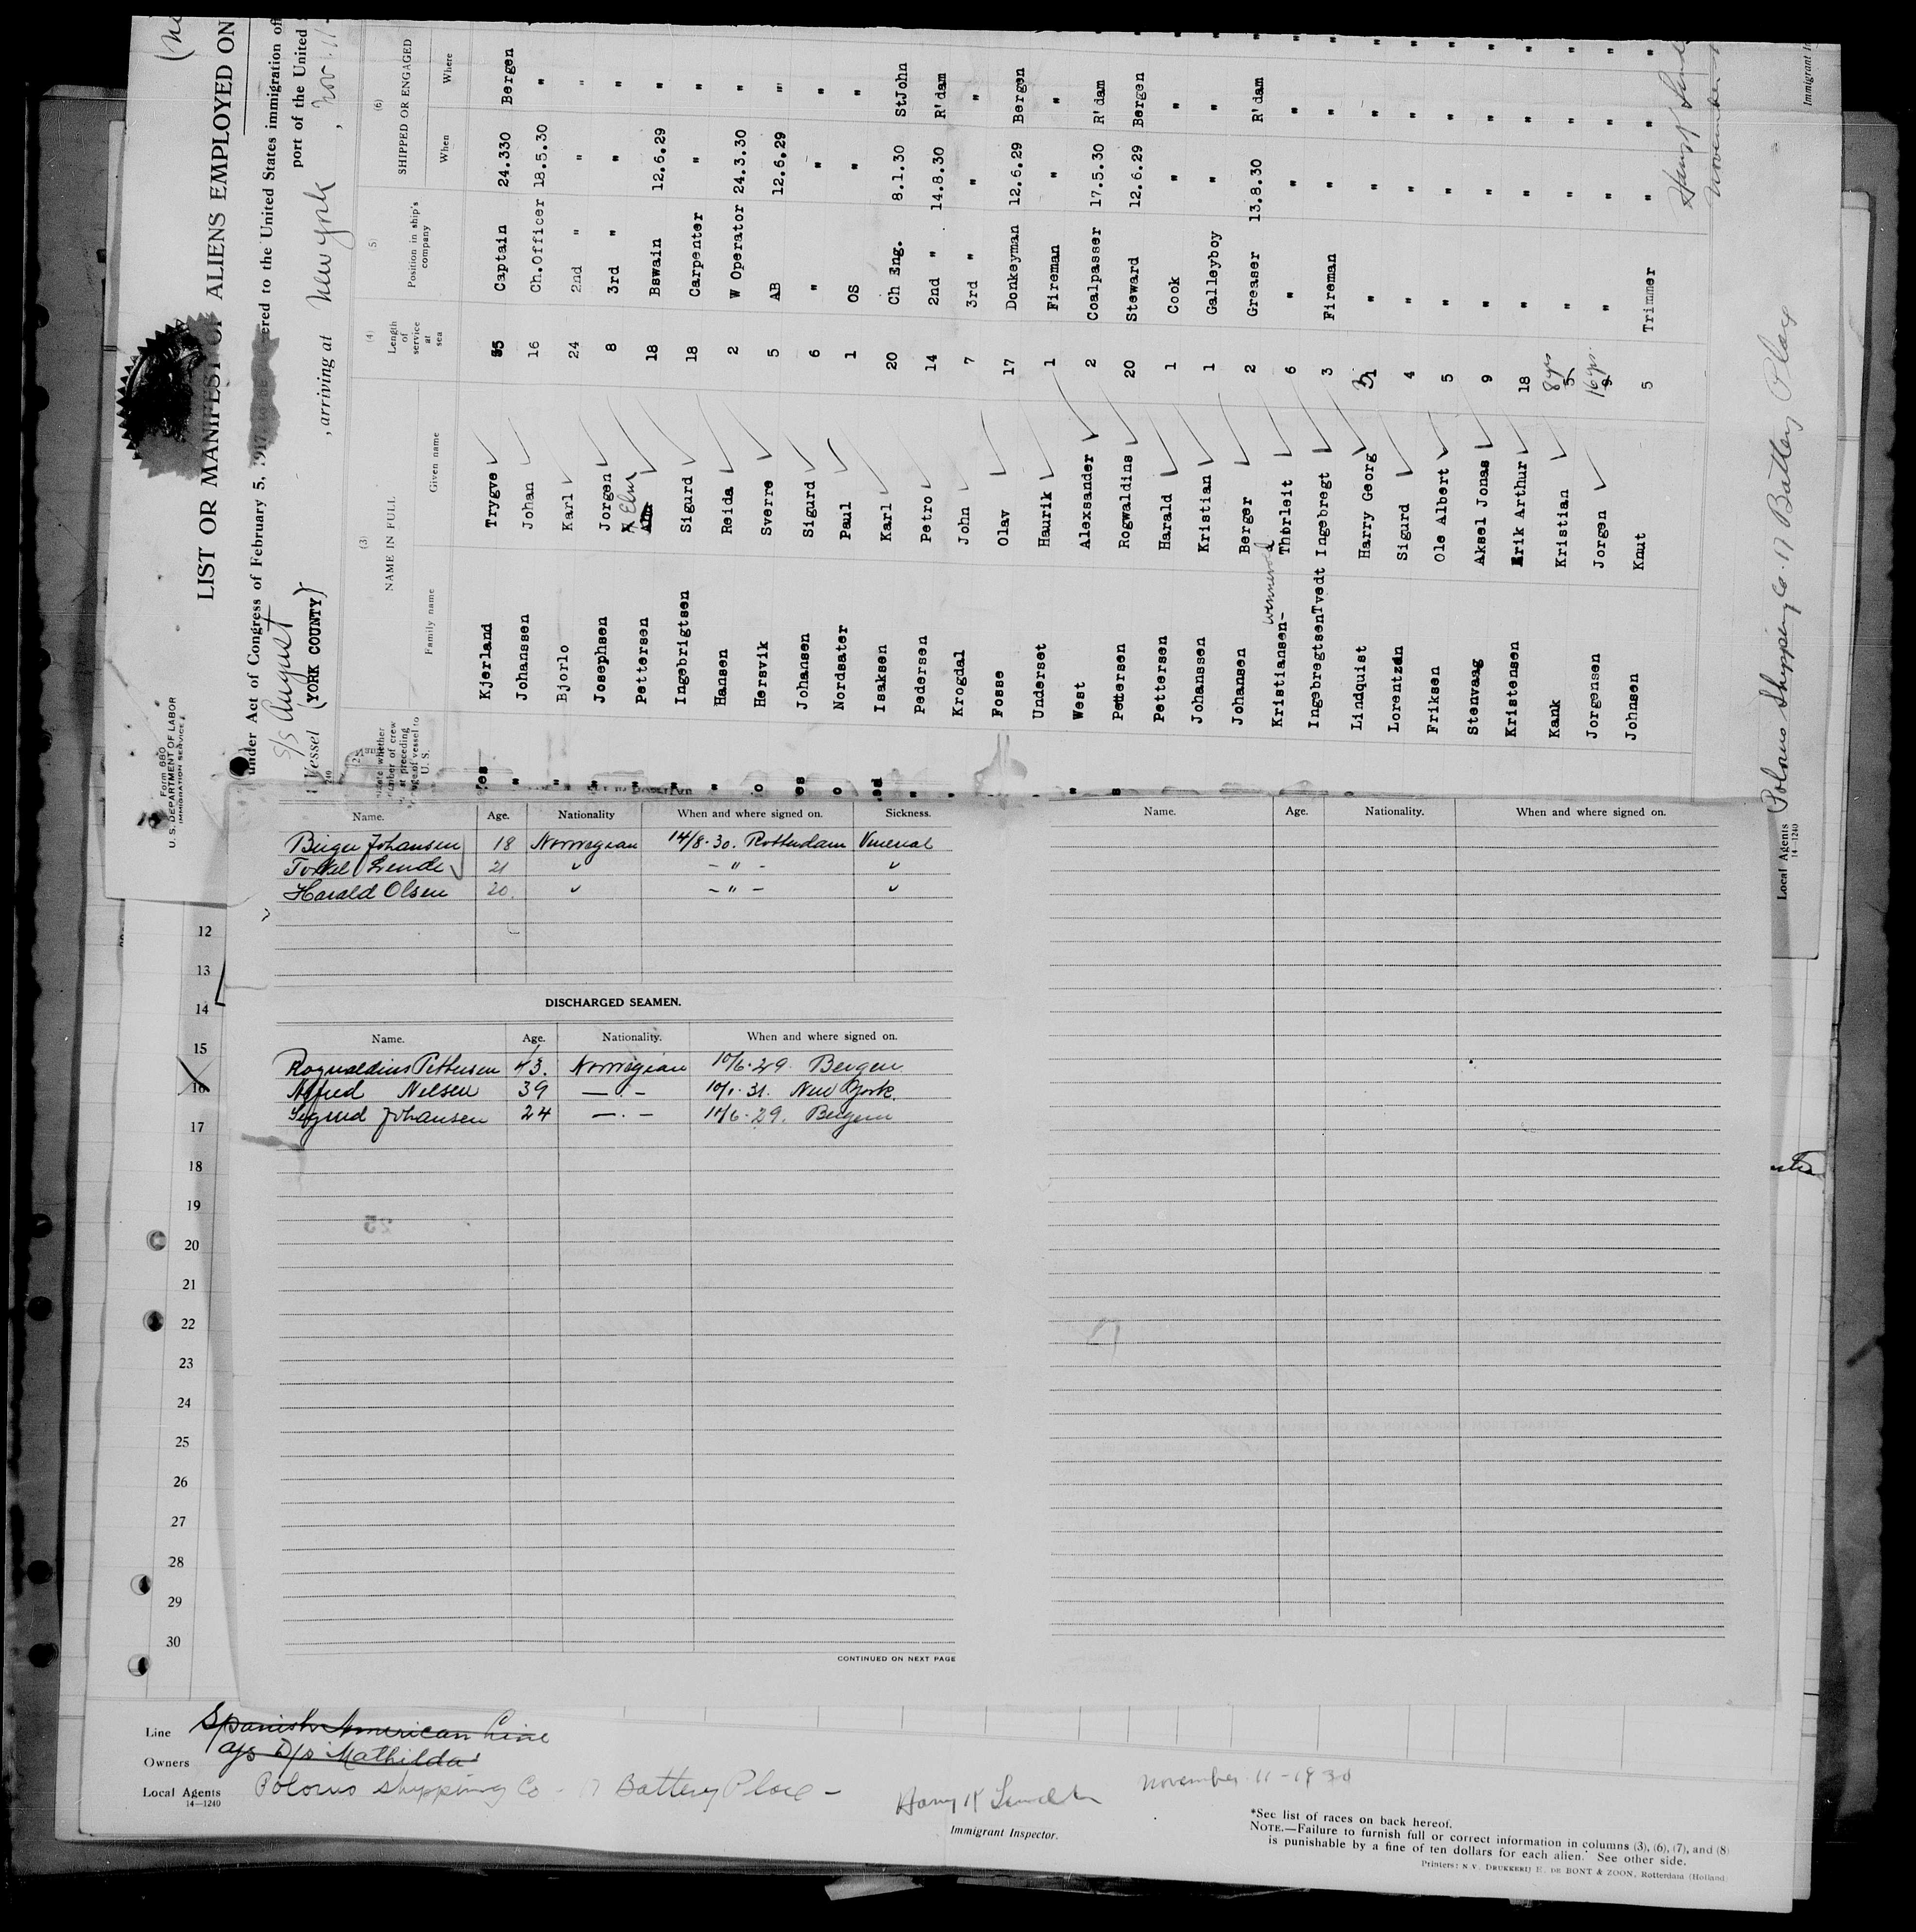 Form 680
U. S. DEPARTMENT OF LABOR
IMMIGRATION SERVICE
LIST OR MANIFEST OF ALIENS EMPLOYED ON
under Act of Congress of February 5, 1917, ered to the United States immigration off
port of the United
S/S August
Vessel (YORK COUNTY) , arriving at New York , Nov. 11
(3) (4) (5) (6)
NAME IN FULL Length of service at sea Position in ship's company SHIPPED OR ENGAGED
Family name Given name When Where
Kjerland Trygve 35 Captain 24.330 Bergen
Johansen Johan 16 Ch.Officer 18.5.30 "
Bjorlo Karl 24 2nd " " "
Josephsen Jorgen 8 3rd " " "
Pettersen 18 Bswain 12.6.29 "
Ingebrigtsen Sigurd 18 Carpenter " "
Hansen Reida 2 W Operator 24.3.30 "
Hersvik Sverre 5 AB 12.6.29 "
Johansen Sigurd 6 " " "
Nordsater Paul 1 OS " "
Isaksen Karl 20 Ch Eng. 8.1.30 StJohn
Pedersen Petro 14 2nd " 14.8.30 R'dam
Krogdal John 7 3rd " " "
Fosse Olav 17 Donkeyman 12.6.29 Bergen
Underset Haurik 1 Fireman " "
West Alexsander 2 Coalpasser 17.5.30 R'dam
Pettersen Rogwaldins 20 Steward 12.6.29 Bergen
Pettersen Harald 1 Cook " "
Johanssen Kristian 1 Galleyboy " "
Johansen Berger 2 Greaser 13.8.30 R'dam
Kristiansen- Thorleit 6 " " "
IngebregtsenTvedt Ingebregt 3 Fireman " "
Lindquist Harry Georg 3 " " "
Lorentzen Sigurd 4 " " "
Friksen Ole Albert 5 " " "
Stenvaag Aksel Jonas 9 " " "
Kristensen Erik Arthur 18 " " "
Kank Kristian 8 yrs " " "
Jorgensen Jorgen 16 yrs. " " "
Johnsen Knut 5 Trimmer " "
Local Agents Polorus Shipping Co. 17 Battery Place
14—1240
Immigrant In
Name. Age. Nationality When and where signed on. Sickness.
Birger Johansen 18 Norwegian 14/8.30. Rotterdam Venereal
Torkel Lende 21 " - " - "
Harald Olsen 20. " - " - "
DISCHARGED SEAMEN.
Name. Age. Nationality. When and where signed on.
Rognvaldius Pettersen 43. Norwegian 10/6.29 Bergen
Alfred Nilsen 39 — . — 10/1.31. New York.
Sigurd Johansen 24 — . — 11/6.29. Bergen
CONTINUED ON NEXT PAGE
Name. Age. Nationality. When and where signed on.
12
13
14
15
16
17
18
19
20
21
22
23
24
25
26
27
28
29
30
Line Spanish American Line
Owners A/S D/S Mathilda
Local Agents Polorus Shipping Co - 17 Battery Place -
14—1240
November 11-1930
Immigrant Inspector.
*See list of races on back hereof.
NOTE.—Failure to furnish full or correct information in columns (3), (6), (7), and (8)
is punishable by a fine of ten dollars for each alien. See other side.
Printers: N V. DRUKKERIJ H. DE BONT & ZOON, Rotterdam (Holland)